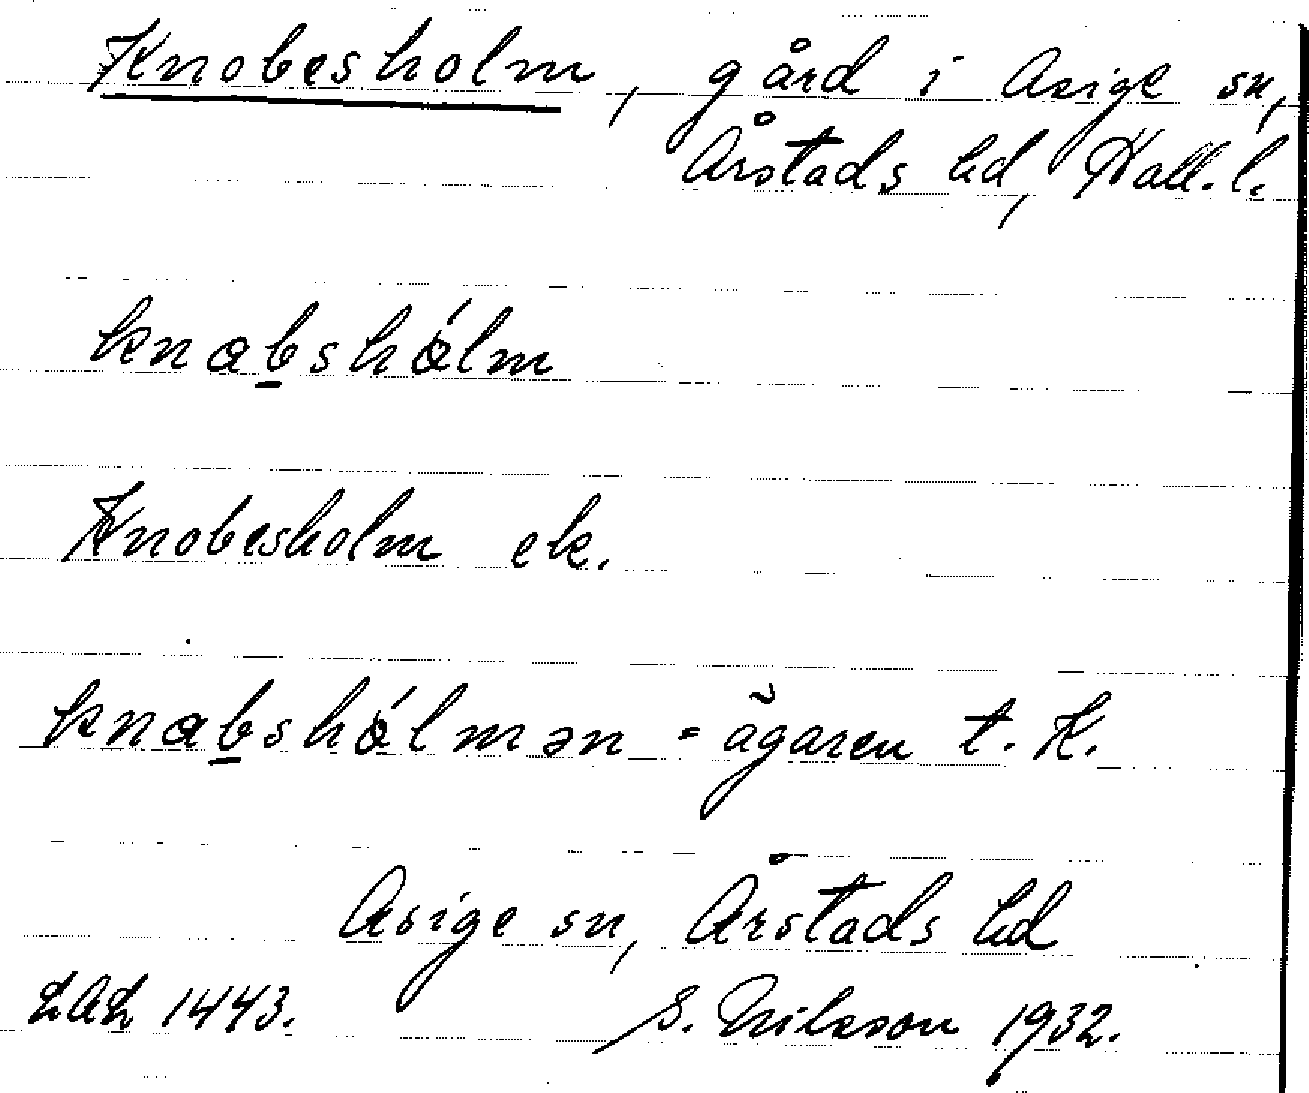 Knobesholm, gård i Asige sn,
Årstads hd, Hall. l.
knabshålm
Knobesholm ek.
knabshålmən = ägaren t. K.
Asige sn, Årstads hd
LAL 1443. S. Nilsson 1932.